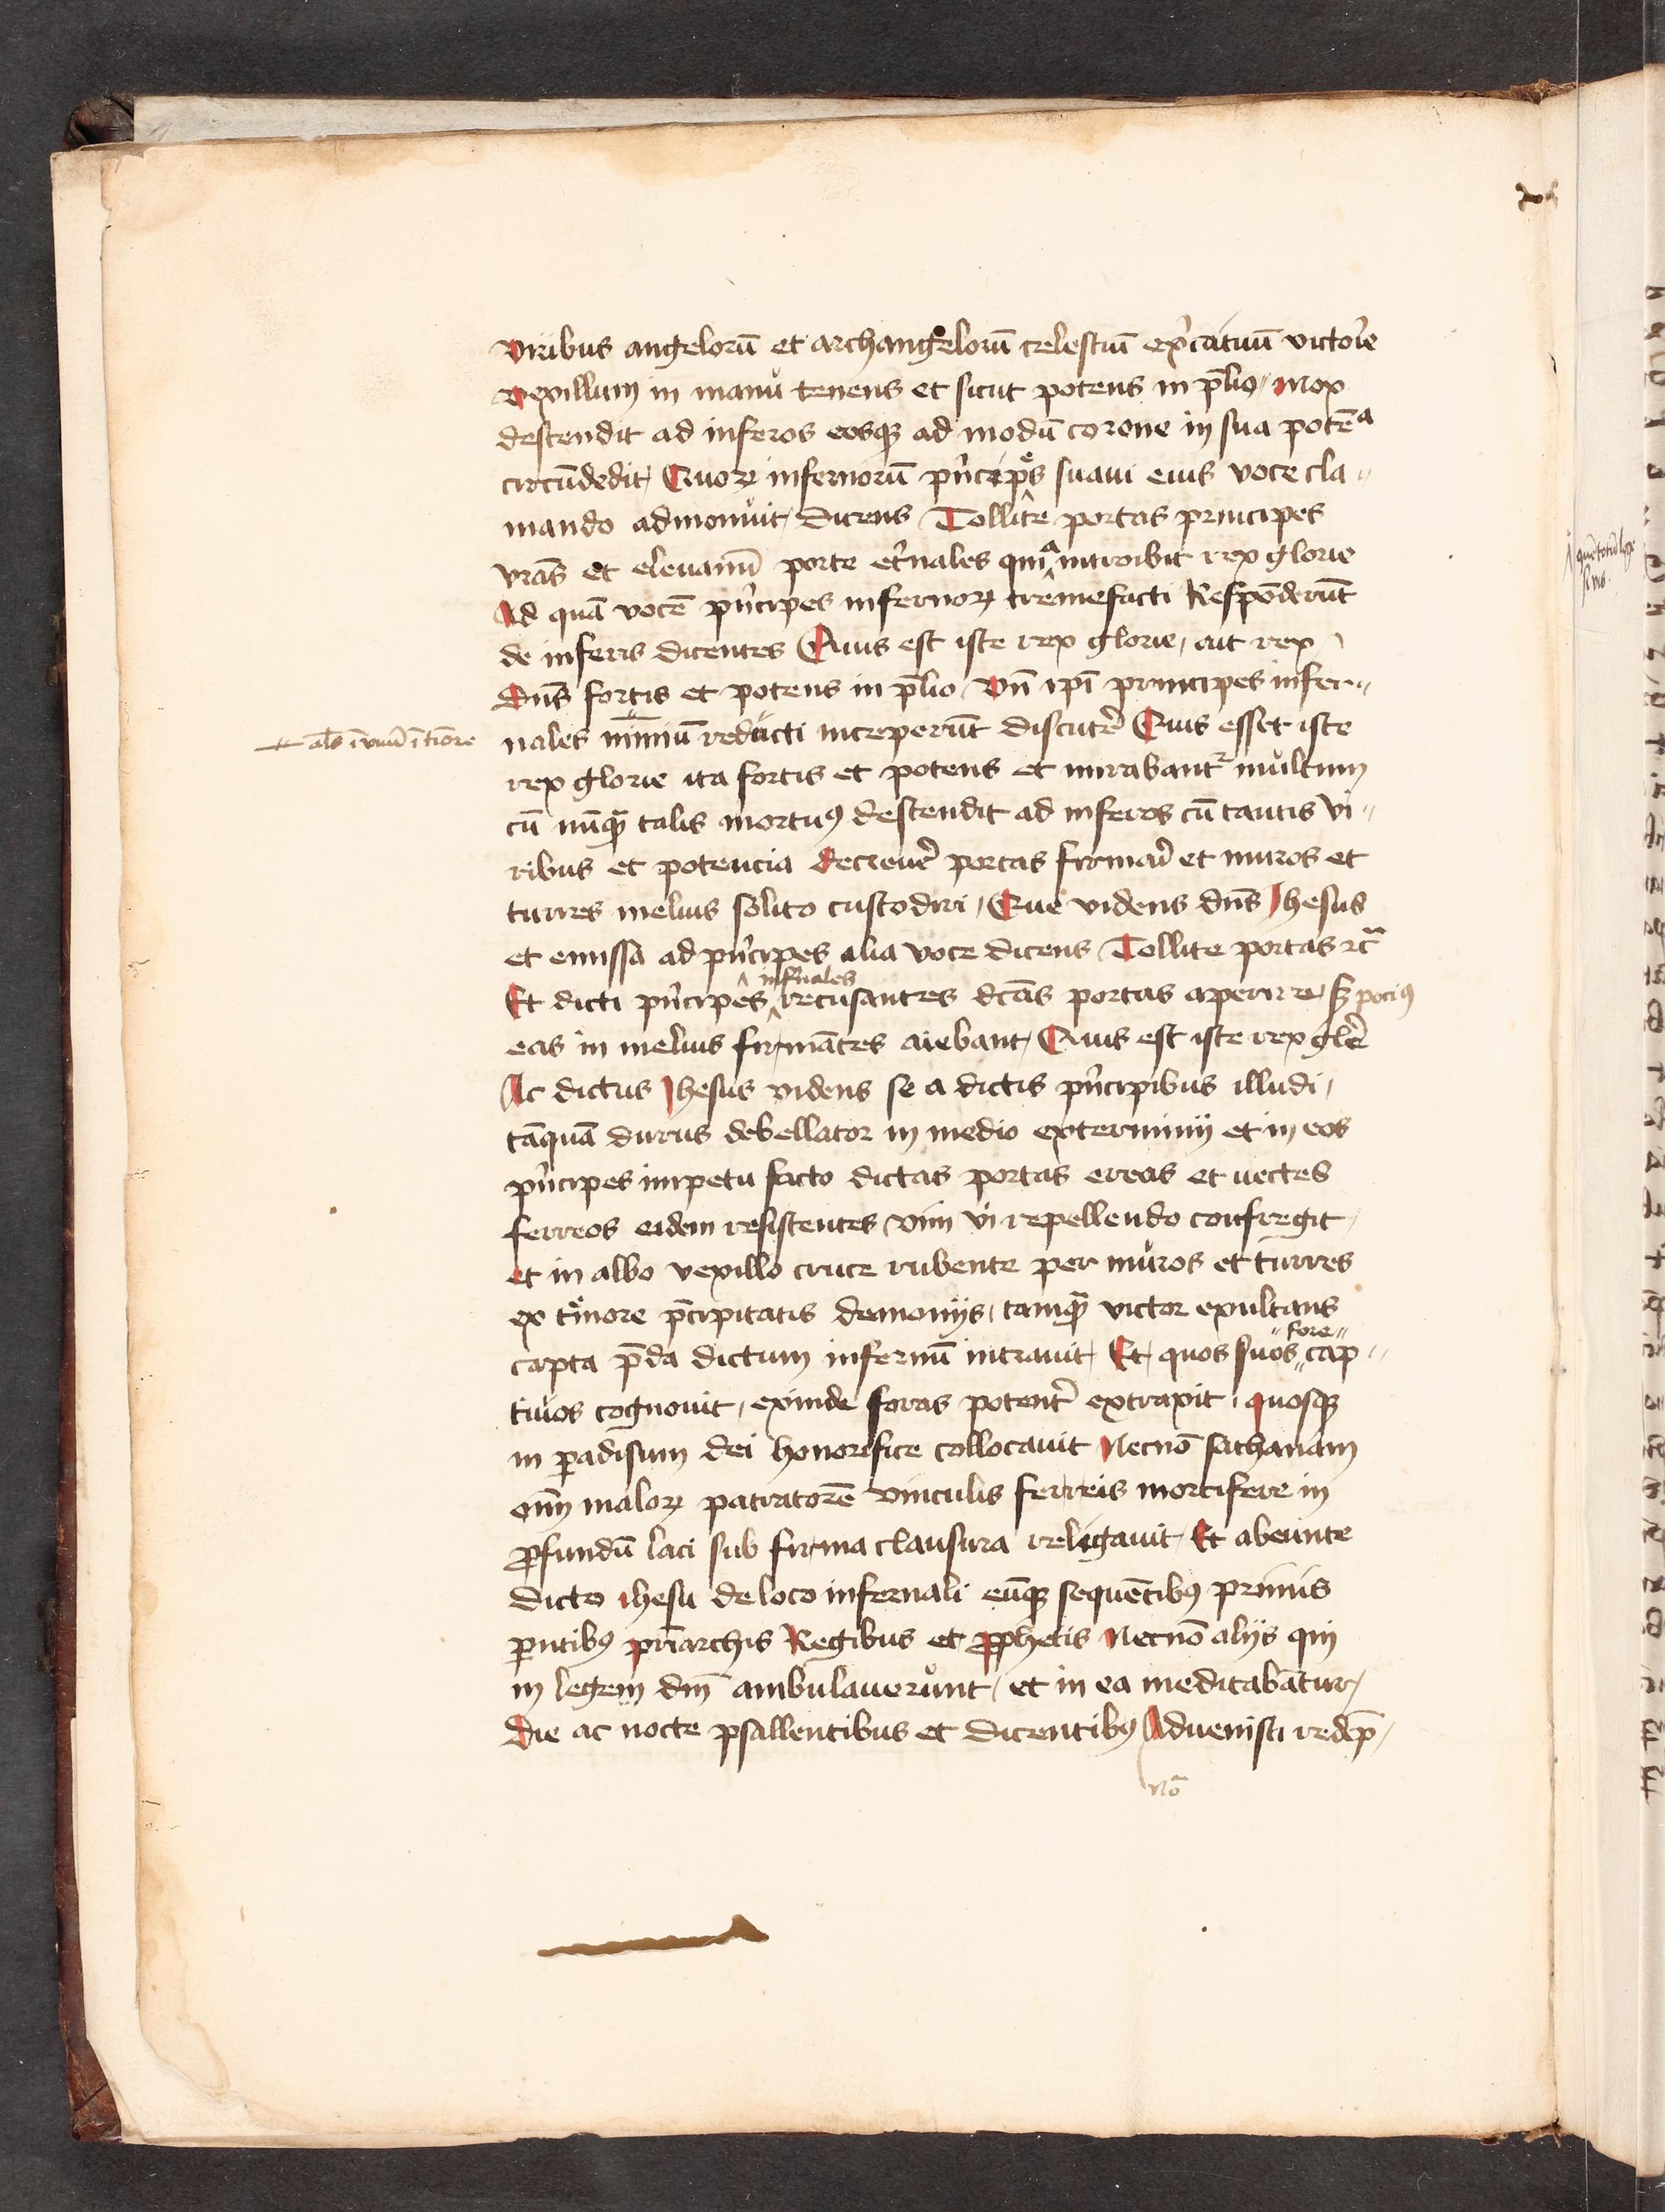 viribus angelorū et archangelorū celestiū exc̓ituū victoīe
vexillum in manu tenens et sicut potens in p̄lio / mox
descendit ad inferos eosqꝫ ad modū corone in sua potēᵃ
circūdedit / Quoꝝ infernorū pn̄cipes suaui eius voce cla⸗
mando admonuit / dicens / Tollite portas principes
vrās et eleuamī porte et̓nales quiᵃ introibit rex glorie
Ad quā vocē pn̄cipes infernoꝝ tremefacti Respōderūt
de inferis dicentes Quis est iste rex glorie / ait rex
dn̄s fortis et potens in p̄lio / Vn̄ ip̄i principes infer⸗
nales nimiū reducti inceperūt discuter̄ Quis esset iste
rex glorie ita fortis et potens et mirabantᷣ multum
cū nūqꝫ talis mortuꝰ descendit ad inferos cū tantis vi⸗
ribus et potencia decreuer̄ portas firmari et muros et
turres melius solito custodiri / Que videns dn̄s Jhesus
et emissa ad pn̄cipes alia voce dicens / Tollite portas ꝛc̄
Et dicti pn̄cipes infr̄nales recusantes dc̄as portas aperire / sꝫ pociꝰ
eas in melius firmātes aiebant / Quis est iste rex glē
Ac dictus Jhesus videns se a dictis pn̄cipibus illudi /
tāquā durus debellator in medio exterminij et in eos
pn̄cipes impetu facto dictas portas ereas et uectes
ferreos eidem resistentes / vim vi repellendo confregit /
et in albo vexillo cruce rubente per muros et turres
ex timore p̄cipitatis demonijs / tamqꝫ victor exultans
capta p̄da dictum infernū intrauit / Et quos suos fore cap⸗
tiuos cognouit / exinde foras potent̄ extraxit / quosqꝫ
in paradisum dei honorifice collocauit Necnō sathanam
om̄ maloꝝ patratorē vinculis ferreis mortifere in
ꝓfundū laci sub firma clausura religauit / Et abeunte
dicto ihesu de loco infernali eūqꝫ sequētibꝰ primis
pn̄tibꝰ pr̄iarchis Regibus et ꝓphetis Necnō alijs qui
in legem dn̄i ambulauerunt / et in ea meditabātur /
die ac nocte psallentibus et dicentibꝰ Aduenisti redēp /
nō